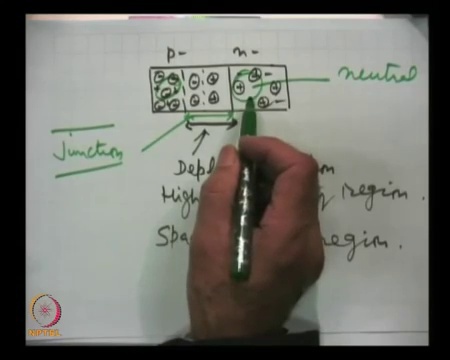 p- n-
neutral
Junction
Depl
High region.
Spa region.
NPTEL